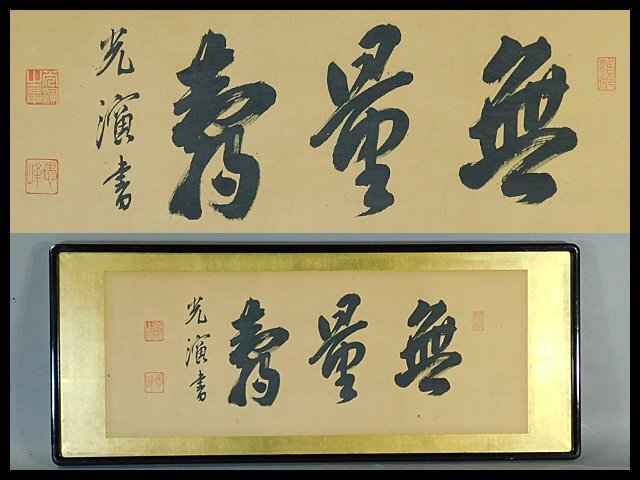 無量壽
光演書
無量壽
光演書